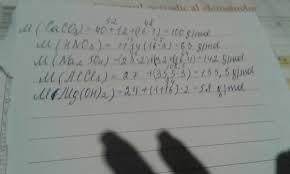 M(CaCO3)=40+12+(16·3)=100g/mol
M(HNO3)=1+14+(16·3)=63 g/mol
M(Na2SO4)=23·2+32+(16·4)=142 g/mol
M(AlCl3)=27+(35,5·3)=133,5 g/mol
M(Mg(OH)2)=24+(1+16)·2=58 g/mol